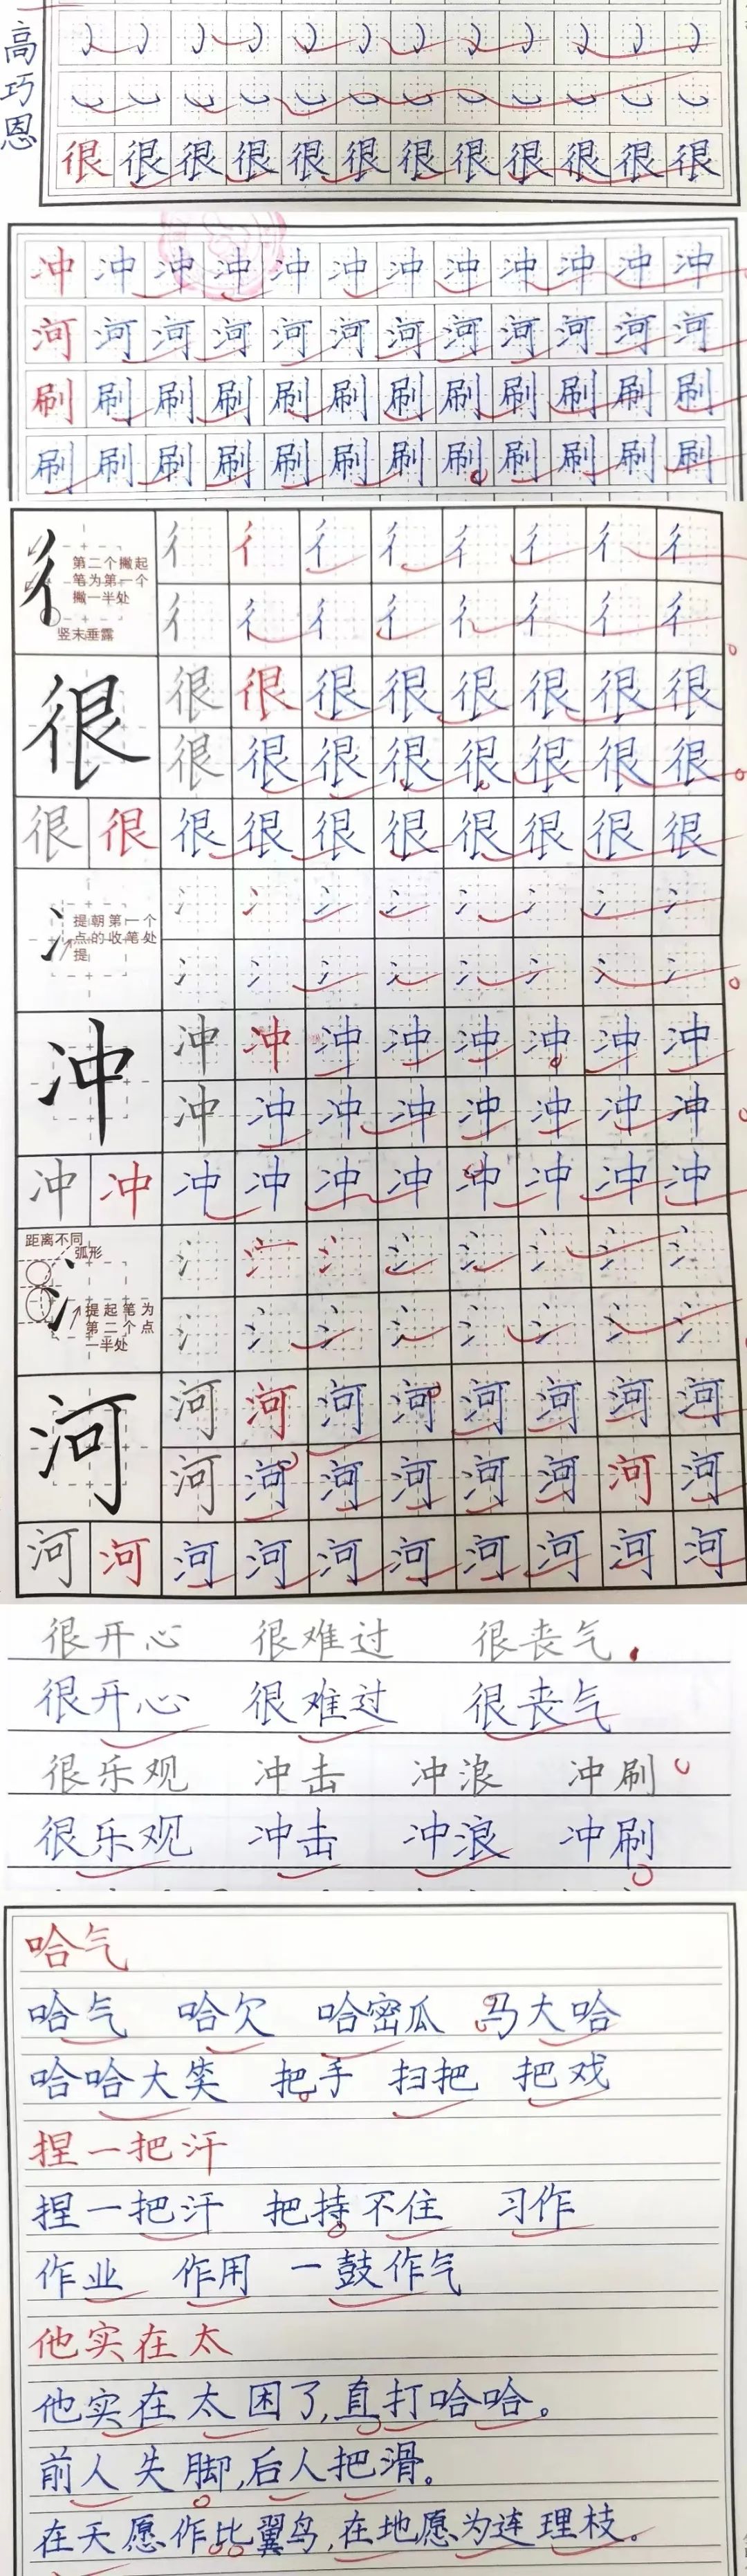 高巧恩
很很很很很很很很很很很很
冲冲冲冲冲冲冲冲冲冲冲冲
河河河河河河河河河河河河
刷刷刷刷刷刷刷刷刷刷刷刷
刷刷刷刷刷刷刷刷刷刷刷刷
第二个撇起
笔为第一个
撇一半处
竖末垂露
彳彳彳彳彳彳彳彳彳
彳彳彳彳彳彳彳彳
很很很很很很很很很
很很很很很很很很
很很很很很很很很很很
提朝第一个
点的收笔处
提
冫冫冫冫冫冫冫冫冫
冫冫冫冫冫冫冫冫
冲冲冲冲冲冲冲冲冲
冲冲冲冲冲冲冲冲
冲冲冲冲冲冲冲冲冲冲
距离不同
弧形
提起笔为
第二个点
一半处
氵氵氵氵氵氵氵氵氵
氵氵氵氵氵氵氵氵
河河河河河河河河河
河河河河河河河河
河河河河河河河河河河
很开心 很难过 很丧气
很开心 很难过 很丧气
很乐观 冲击 冲浪 冲刷
很乐观 冲击 冲浪 冲刷
哈气
哈气 哈欠 哈密瓜 马大哈
哈哈大笑 把手 扫把 把戏
捏一把汗
捏一把汗 把持不住 习作
作业 作用 一鼓作气
他实在太
他实在太困了,直打哈哈。
前人失脚,后人把滑。
在天愿作比翼鸟,在地愿为连理枝。